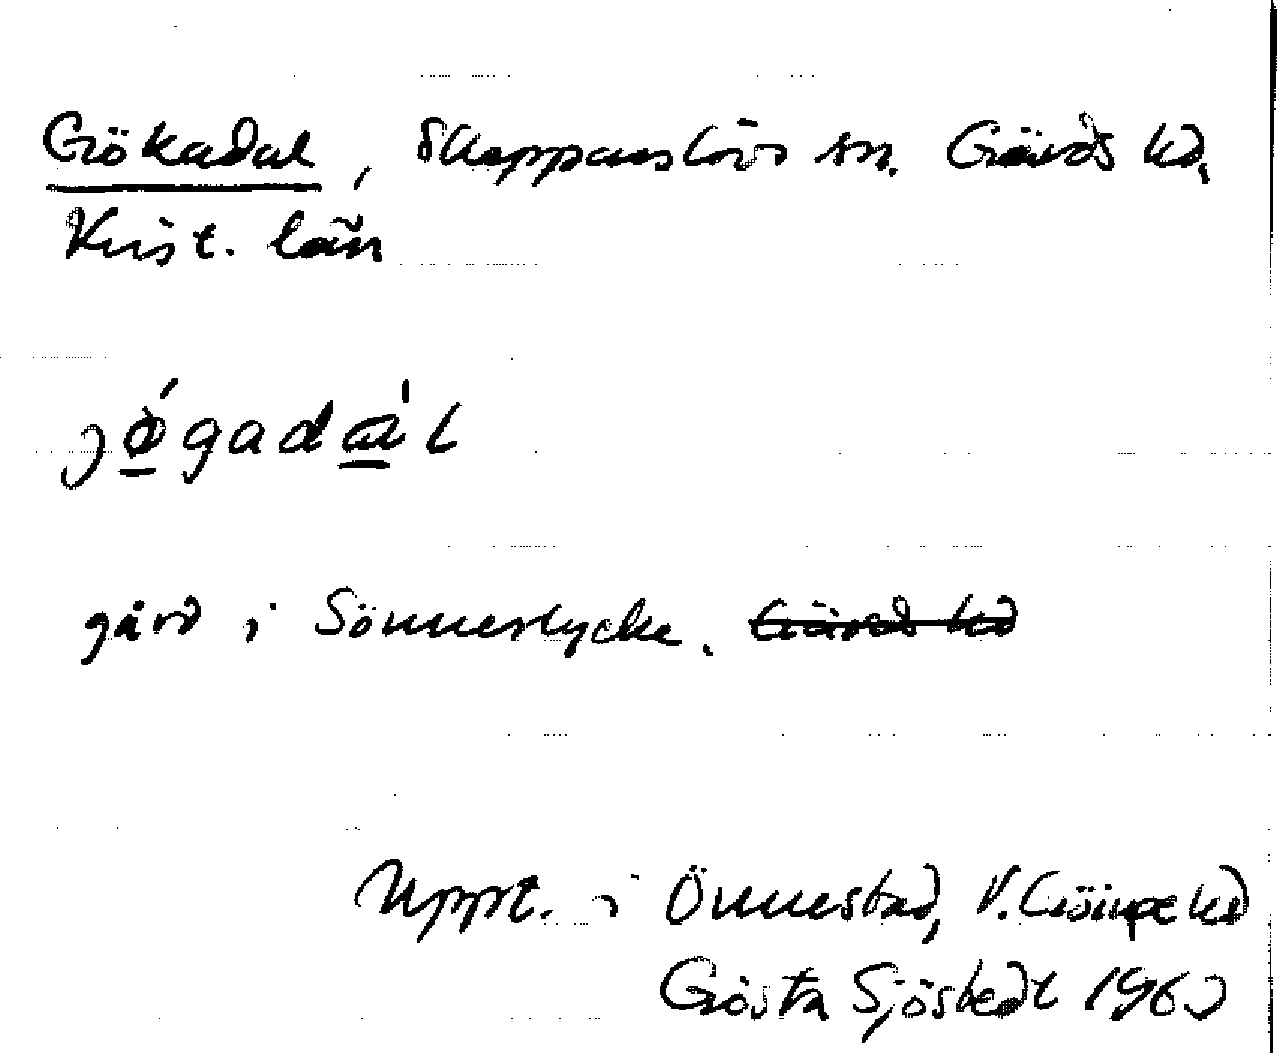 Gökadal, Skepparslövs sn. Gärds hd,
Krist. län
jǿ̱gadα̱̍l
gård i Sönnerslycke. ~~Gärds hd~~
Uppt. i Önnestad, V. Göinge hd
Gösta Sjöstedt 1960